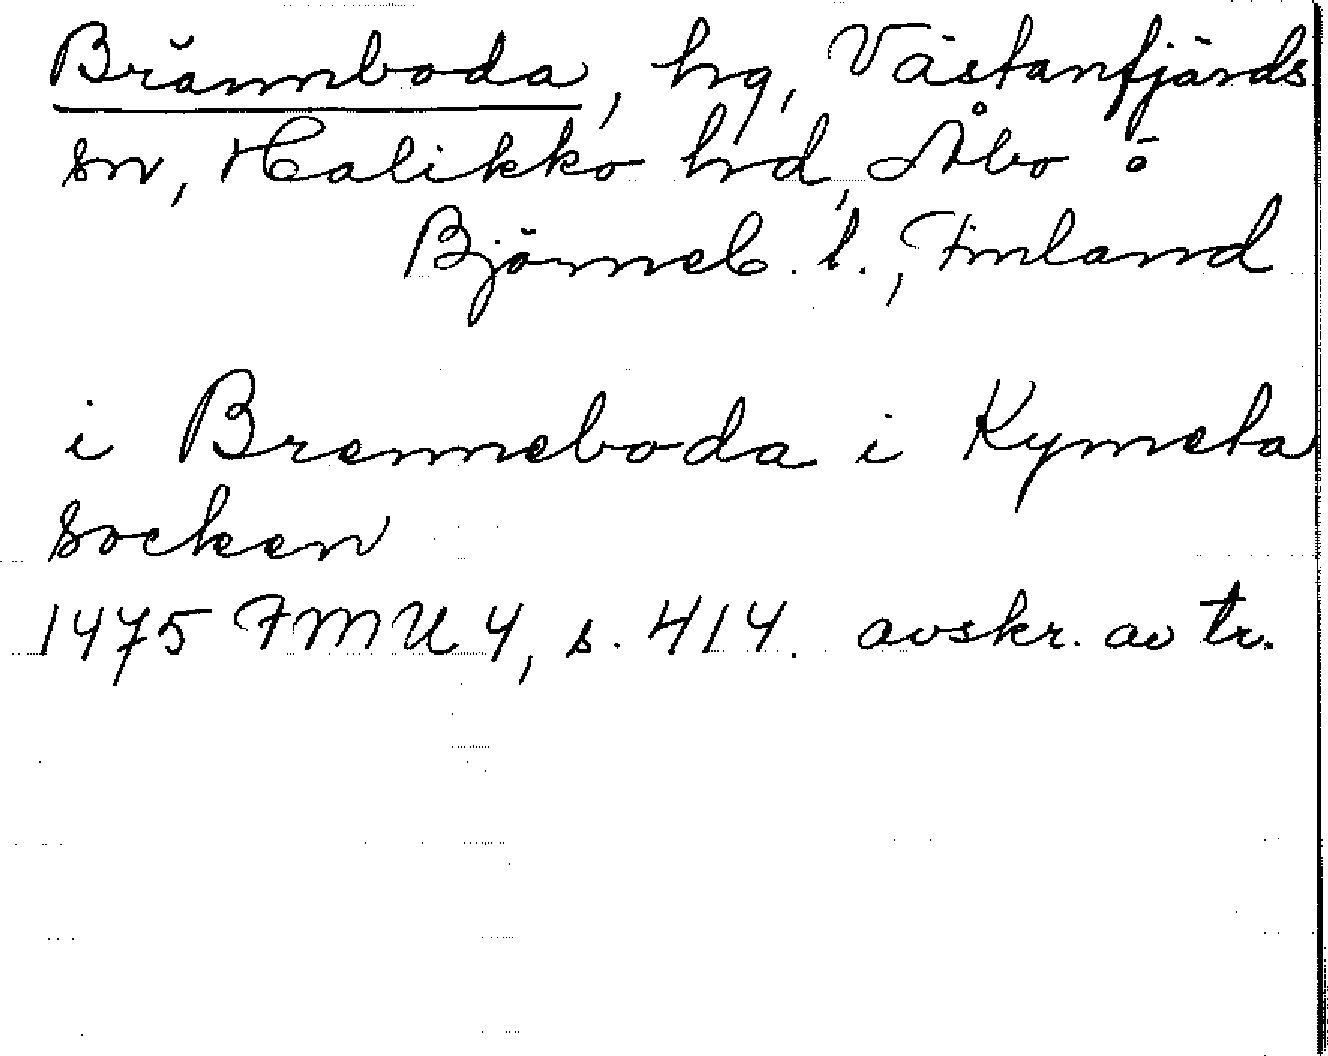 Brännboda, hg, Västanfjärds
sn, Halikko hd, Åbo ö
Björneb. l., Finland
i Brenneboda i Kymeta
socken
1475 FMU 4, s. 414. avskr. av tr.